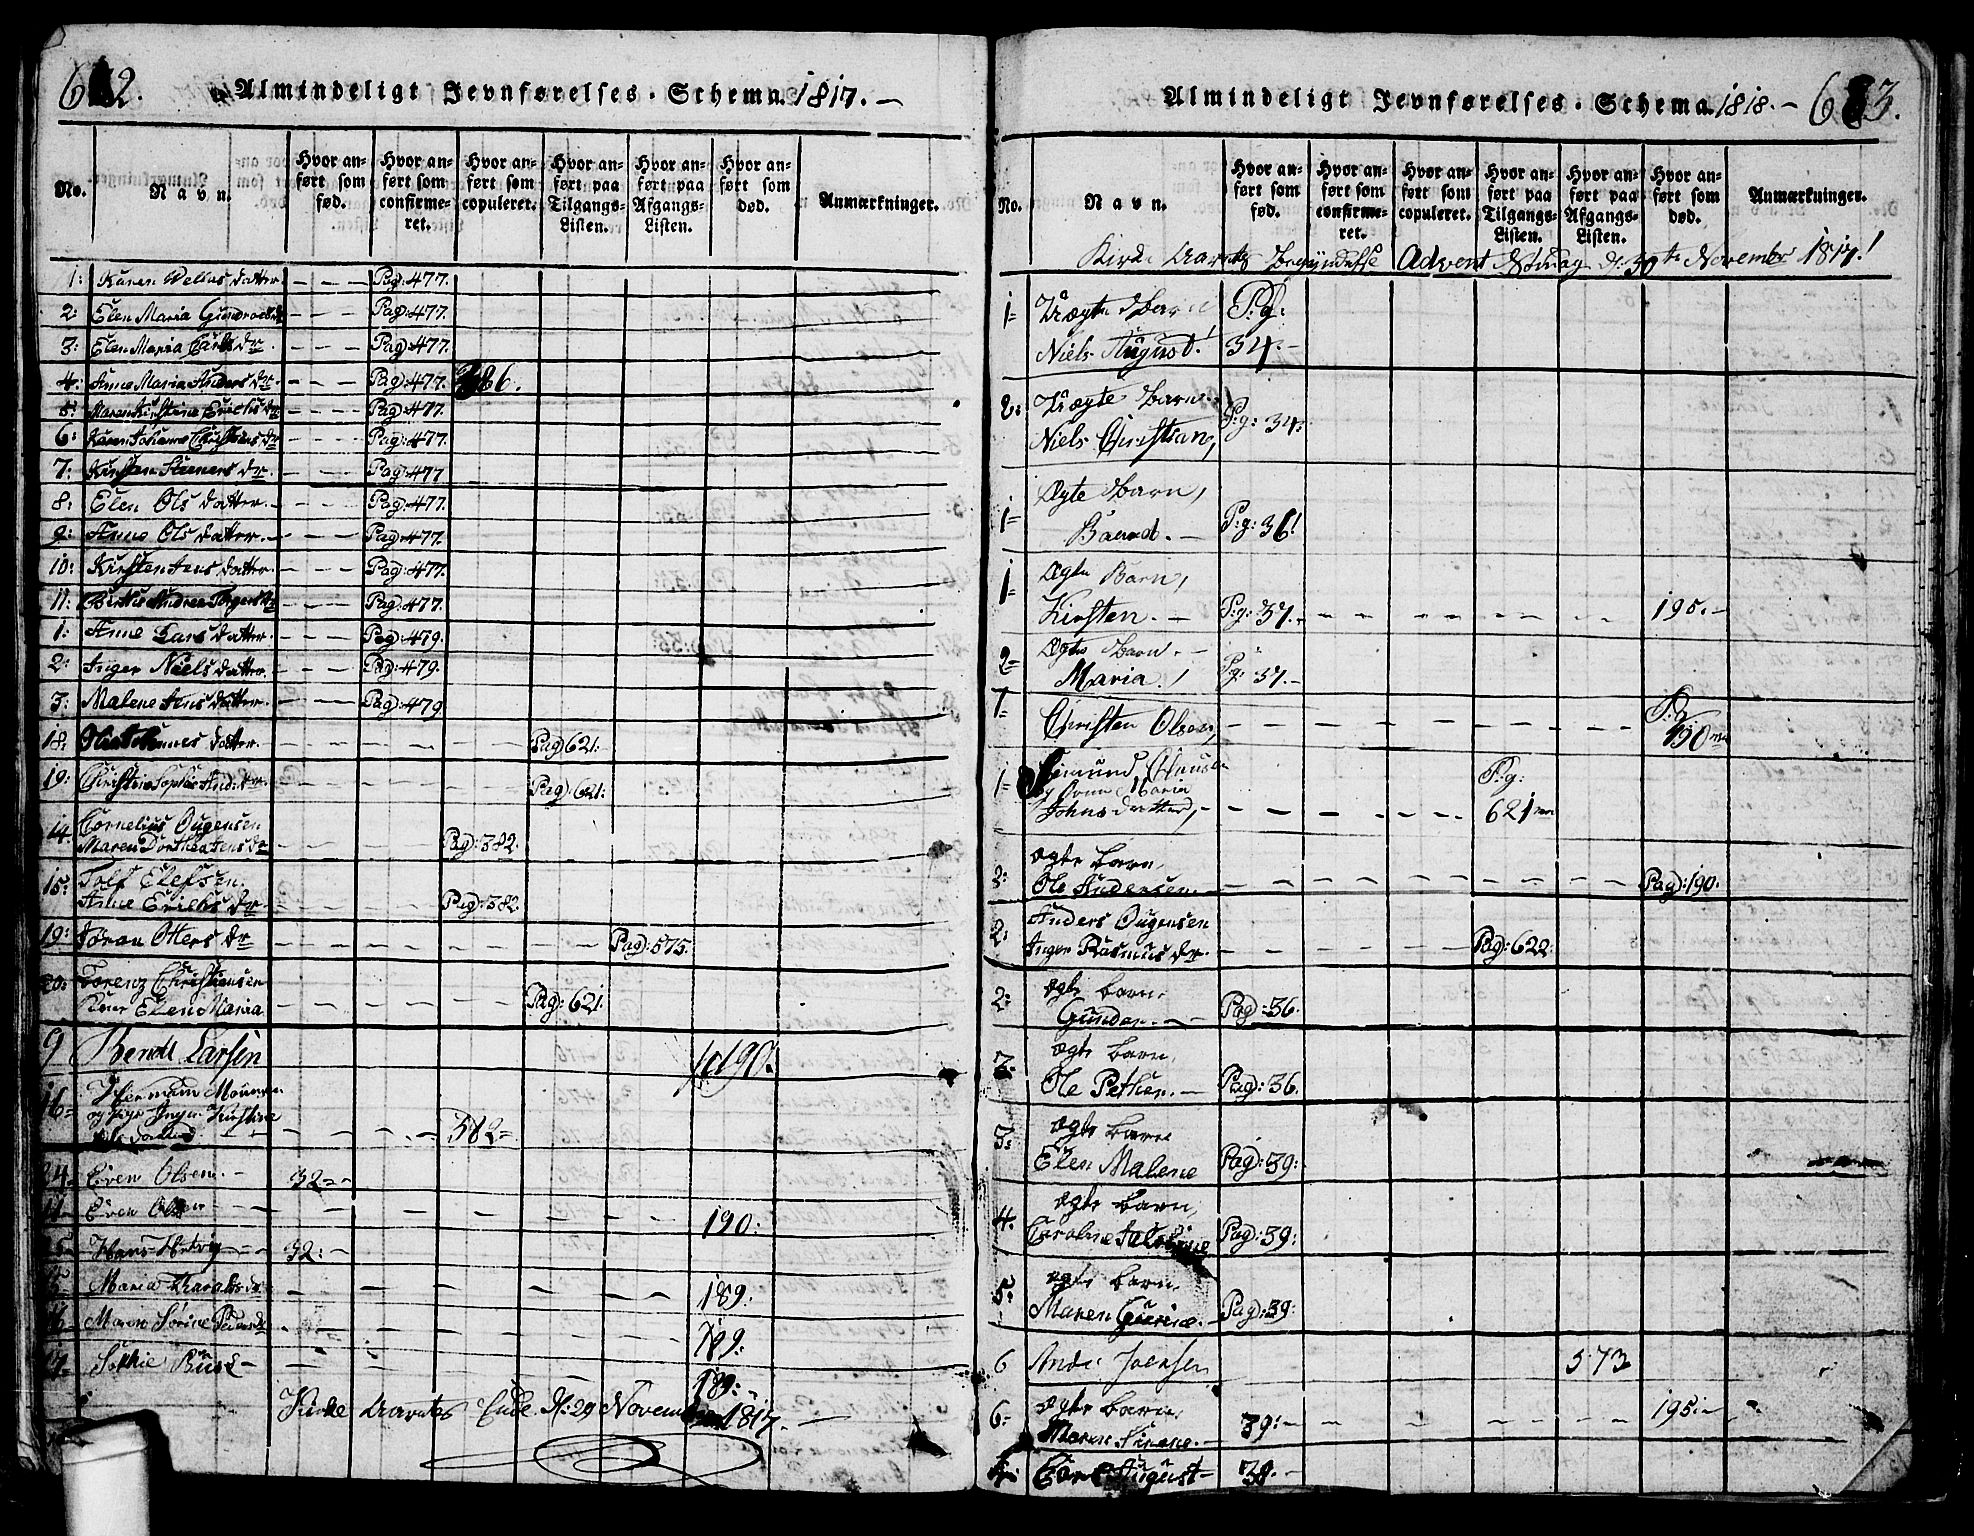 682.
Almindeligt Jevnførelses-Schema 1817.
No.
Navn.
Hvor anført som fød.
Hvor anført som confirmeret.
Hvor anført som copuleret.
Hvor anført paa Tilgangs-Listen.
Hvor anført paa Afgangs-Listen.
Hvor anført som død.
Anmærkninger.
1: Karen datter. Pag: 477.
2: Elen Maria Pag: 477.
3: Elen Maria Dr. Pag: 477.
4: Anne Maria Anders Dr. Pag: 477. 386.
5: Maren Kirstine Erichs Dr. Pag: 477.
6: Karen Johanne Christens Dr. Pag: 477.
7: Kirsten Dr. Pag: 477
8: Elen Ols datter. Pag: 477.
9: Anne Ols datter. Pag: 477.
10: Kirsten Jens datter. Pag: 477.
11: Andrea Torgers Dr. Pag: 477.
1: Anne Lars datter. Pag: 479.
2: Inger Niels datter. Pag: 479.
3: Malene Jens datter. Pag: 479
18: datter. Pag: 621:
19: Christine Sophie And: Dr. Pag: 621:
14 Cornelius Ougensen
Maren Dorthea Jens Dr Pag: 382.
15: Tolf Elefsen.
Anne Erichs Dr Pag: 382
19: Joran Ollers Dr Pag: 575.
20: Lorenz Christiansen
Elen Maria Pag: 621.
9 Bendt Larsen p 190.
16 Herman
Kirstine
382
24 Even Olsen. 32
11 Even Olsen 190:
25 Hans Hetvig 32:
Maria 189:
16 Maren Sørine Peders Dr 189:
17. Sophie Busk 189:
Kirke Aarets Ende d: 29 November 1817.
Almindeligt Jevnførelses-Schema 1818. 683.
No.
Navn.
Hvor anført som fød.
Hvor anført som confirmeret.
Hvor anført som copuleret.
Hvor anført paa Tilgangs-Listen.
Hvor anført paa Afgangs-Listen.
Hvor anført som død.
Anmærkninger.
Kirke Aarets Begyndelse Advent Søndag d: 30te November 1817!
1= Uægte Barn Pg:
Niels August! 34.
2: Uægte Barn
Niels Christian, Pg: 34.
1= Ægte Barn,
Baerd. Pg: 36!
1= Ægte Barn,
Kirsten. Pg: 37. 195.
2= Ægte Barn.
Maria. Pg: 37.
1= Christen Olsen, Pg: 190
1= Hansen
og Maria
Johns datter, Pg: 621
3: ægte barn,
Ole Andersen. Pag: 190.
2: Anders Ougensen
Inger Rasmus Dr. Pag: 622.
2: ægte barn.
Gunder. Pag: 36.
3: ægte barn,
Ole Pettier. Pag: 36.
3: ægte barn
Elen Malene Pag: 39:
4: ægte barn,
Caroline Pag: 39:
5: ægte barn,
Maren Gurine. Pag: 39:
6 Ande Joensen 573
6: ægte barn,
Maren Sirene. 39: 195.
Carl August 39.